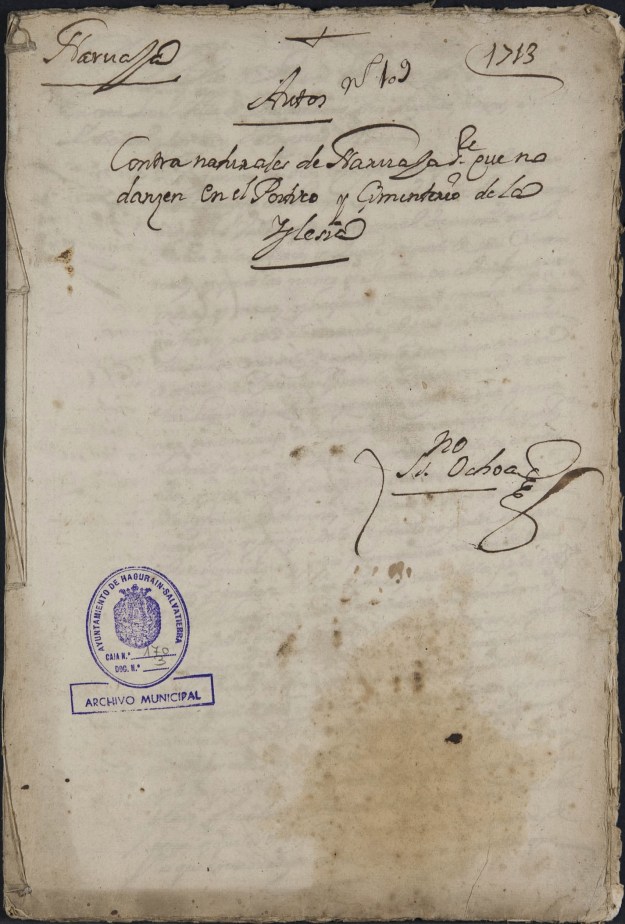 Narvaja
1713
Autos nº 109
Contra naturales de Narvaja sre que no
danzen en el Portico y Cimenterio de la
Yglesia
sno
Ochoa
AYUNTAMIENTO DE HAGURAIN-SALVATIERRA
CAJA N.º 170
DOC. N.º 3
ARCHIVO MUNICIPAL